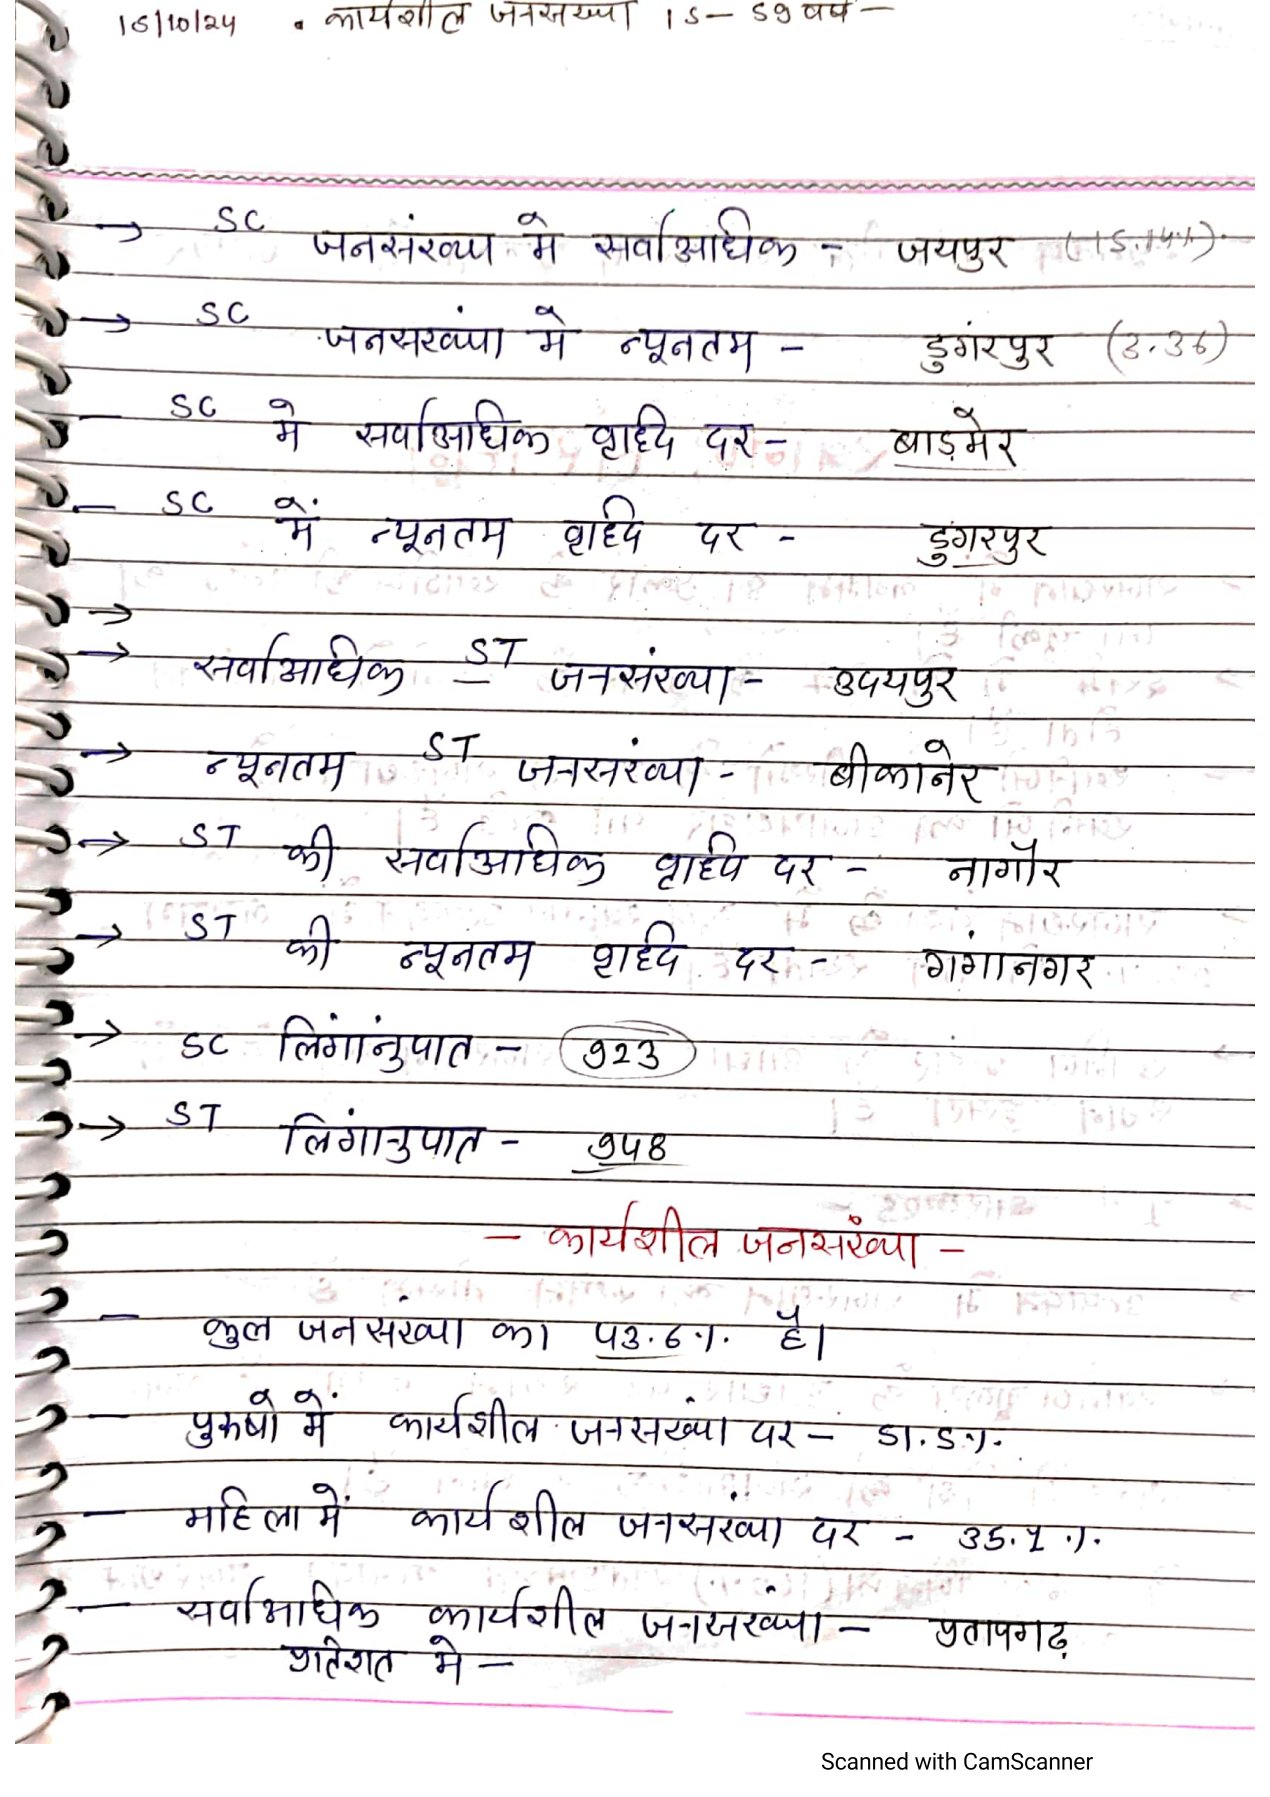 15/10/24 • कार्यशील जनसंख्या 15 – 59 वर्ष –
→ SC जनसंख्या मे सर्वाआधिक – जयपुर (15.14%)
→ SC जनसख्यां मे न्यूनतम – डुगंरपुर (3.36)
– SC मे सर्वाआधिक वृध्दि दर – बाड़मेर
– SC में न्यूनतम वृध्दि दर – डुगंरपुर
→
→ सर्वाआधिक ST जनसंख्या – उदयपुर
→ न्यूनतम ST जनसंख्या – बीकानेर
→ ST की सर्वाआधिक वृध्दि दर – नागौर
→ ST की न्यूनतम वृध्दि दर – गगांनगर
→ SC लिंगांनुपात – 923
→ ST लिंगानुपात – 948
– कार्यशील जनसंख्या –
– कुल जनसंख्या का 43.6%. है।
– पुरुषो में कार्यशील जनसख्यां दर – 51.5%.
– महिला में कार्यशील जनसंख्या दर – 35.1%.
– सर्वाआधिक कार्यशील जनसंख्या – प्रतापगढ़
प्रतिशत मे –
Scanned with CamScanner